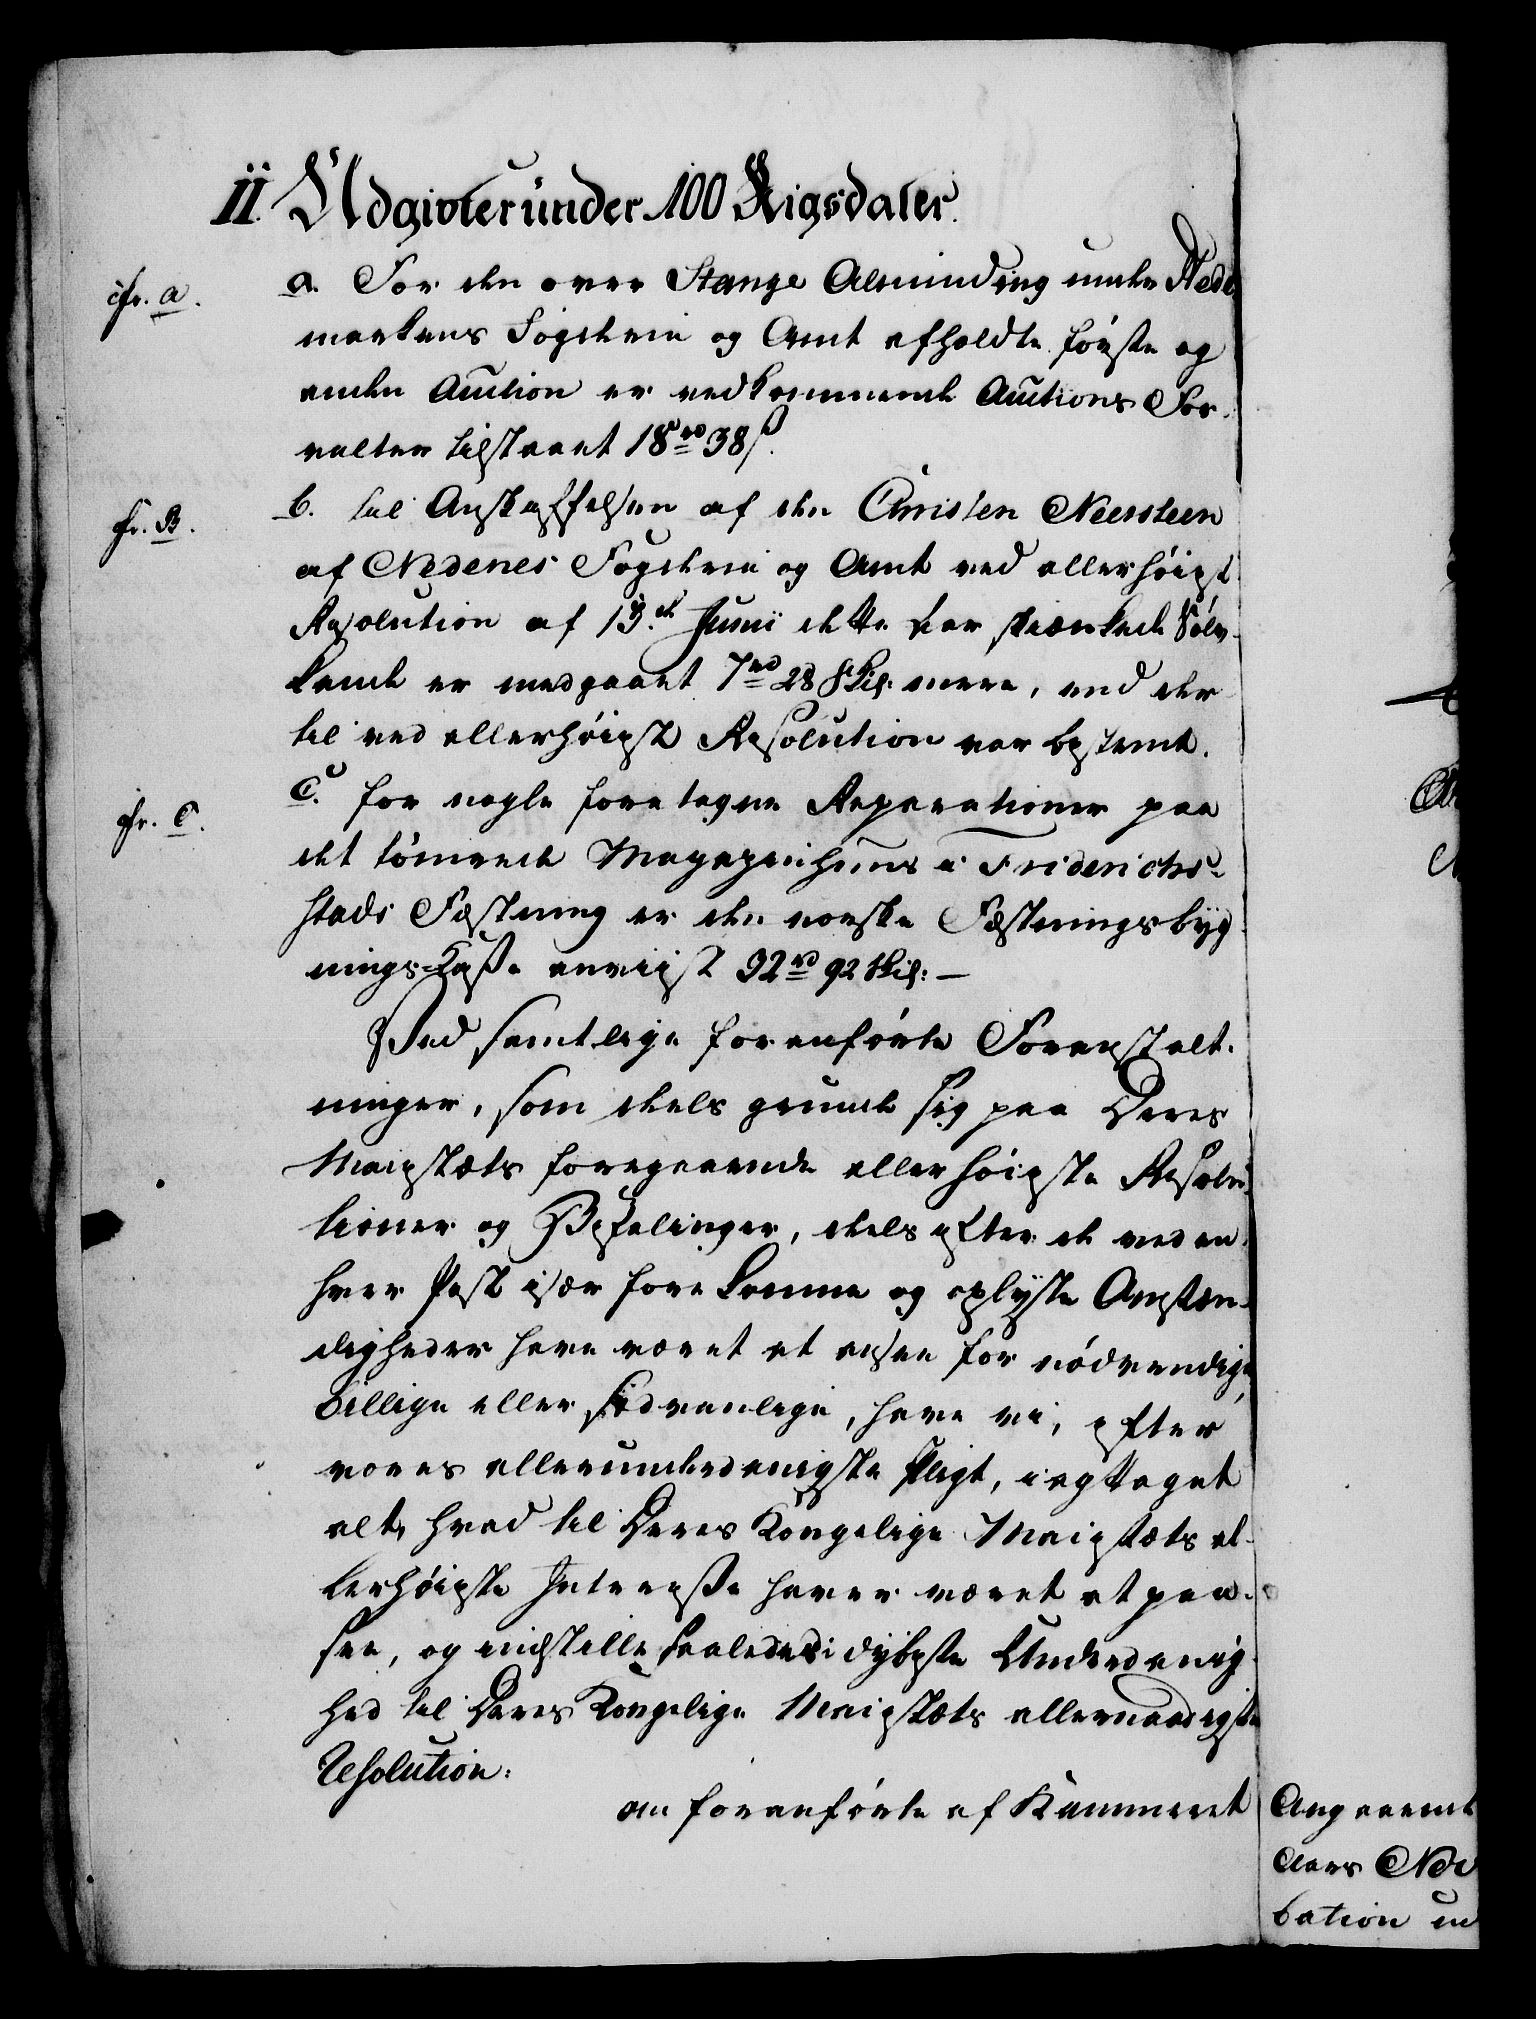 II. Udgivter under 100 Rigsdaler.
cfr. a.
a. For den over Stange Alminding under Hede
markens Fogderie og Amt afholdte første og
anden Auction er vedkommende Auctions For-
valter tilstaaet 18rd 38ß.
cfr. B.
b. til Anskaffelsen af den Christen Neersteen
af Nedenes Fogderie og Amt ved allerhøigst
Resolution af 13de Junii dette Aar skiænkede Sølv-
kande er medgaaet 7rd 28 skil: mere, end der
til ved allerhøigst Resolution var bestemt.
cfr. C.
C. for nogle foretagne Reparationer paa
det tømrede Magazinhuus i Friderichs-
stads Fæstning er den norske Fæstningsbyg
nings-Casse anviist 32rd 92 skil: —
Ved samtlige foranførte Foranstalt-
ninger, som deels grunde sig paa Deres
Majestæts foregaaende allerhøigste Resolu-
tioner og Befalinger, deels efter de ved en-
hver Post især forekomne og oplyste Omstæn-
digheder have været at ansee for nødvendige
billige eller sædvanlige, have vi, efter
vores allerunderdanigste Pligt, iagttaget
alt, hvad til Deres Kongelige Majestæts al-
lerhøigste Interesse haver været at paa-
see, og indstille saaledes i dybeste Underdanig-
hed til Deres Kongelige Majestæts allernaadigste
Resolution:
om foranførte af Kammeret
Angaaende
Aars Nov
bation un